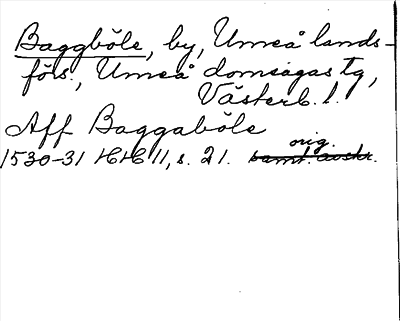 Baggböle, by, Umeå lands-
förs., Umeå domsagas tg,
Västerb. l.
Aff Baggaböle
orig.
1530-31 HH 11, s. 21. samt. avskr.